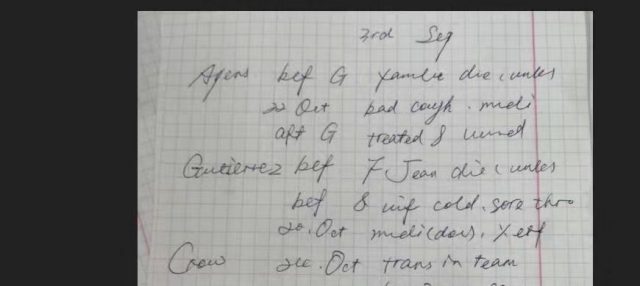 3rd Seg
Ayers bef G die, unles
22 Oct bad cough. medi
aft G treated &
Gutierrez bef 7 Jean die, unles
bef 8 inf cold. sore thro
20. Oct medi(dos).
Crow Oct trans in team